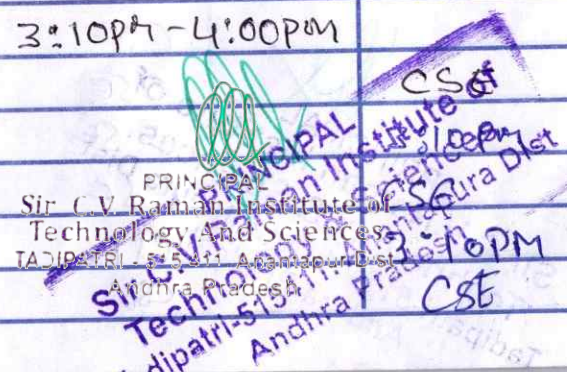 3:10PM-4:00PM
CSE
PRINCIPAL
Sir C.V. Raman Institute of
Technology And Sciences
TADIPATRI - 515 411, Anantapur Dist
Andhra Pradesh
PRINCIPAL
Sir C.V. Raman Institute of
Technology & Sciences
Tadipatri-515411, Anantapura Dist
Andhra Pradesh
3:10PM
CSE